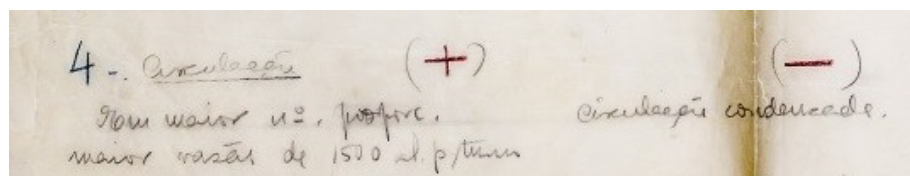 4-. Circulação (+) (—)
Num maior nº. propорc. circulação condensada.
maior vazão de 1500 al. p/turno